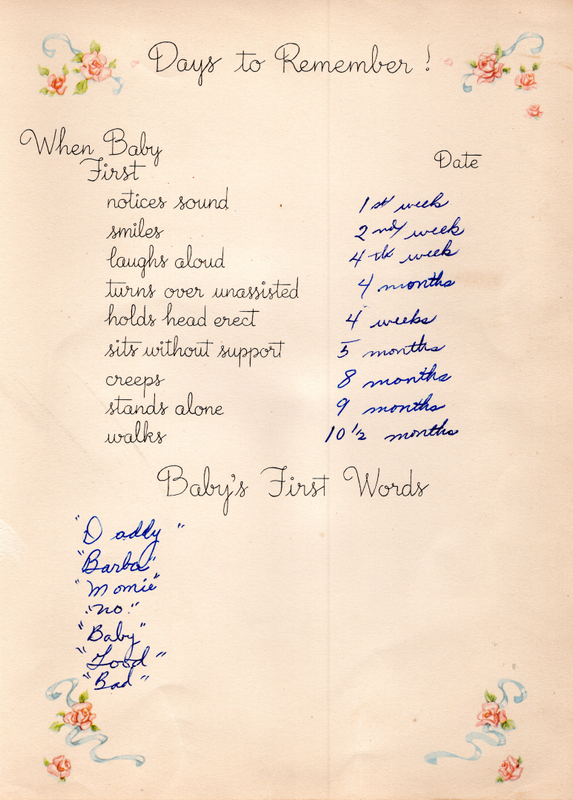 Days to Remember!
When Baby
First
Date
notices sound 1st week
smiles 2nd week
laughs aloud 4th week
turns over unassisted 4 months
holds head erect 4 weeks
sits without support 5 months
creeps 8 months
stands alone 9 months
walks 10 1/2 months
Baby's First Words
"Daddy"
"Barba"
"Momie"
"no."
"Baby"
"Good"
"Bad"